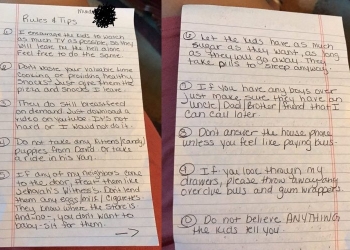 Rules & Tips
① I encourage the kids to watch
as much TV as possible, so they
will leave the hell alone
feel free to do the same.
② Don't waste your valuable time
cooking or providing healthy
snacks! Just give them the
pizza and snacks I leave.
③ They do still breastfeed
on demand. Just download a
video on youtube. It's not
hard or I would not do it
④ Do not take any kittens/candy/
puppies from David or take
a ride in his van.
⑤ If any of my neighbors come
to the door, treat them like
Jehovah's Witness. Dont lend
them any eggs/milk/cigarettes
They know where the store is
and -no-, you don't want to
baby-sit for them.
⑥ Let the kids have as much
sugar as they want, as long
as they will go away. They
take pills to sleep anyway.
⑦ If you have any boys over
just make sure they have an
uncle/Dad/Brother/friend that I
can call later
⑧ Dont answer the house phone
unless you feel like paying bills
⑨ If you look through my
drawers, please throw away any
overdue bills and gum wrappers.
⑩ Do not believe ANYTHING
the kids tell you.